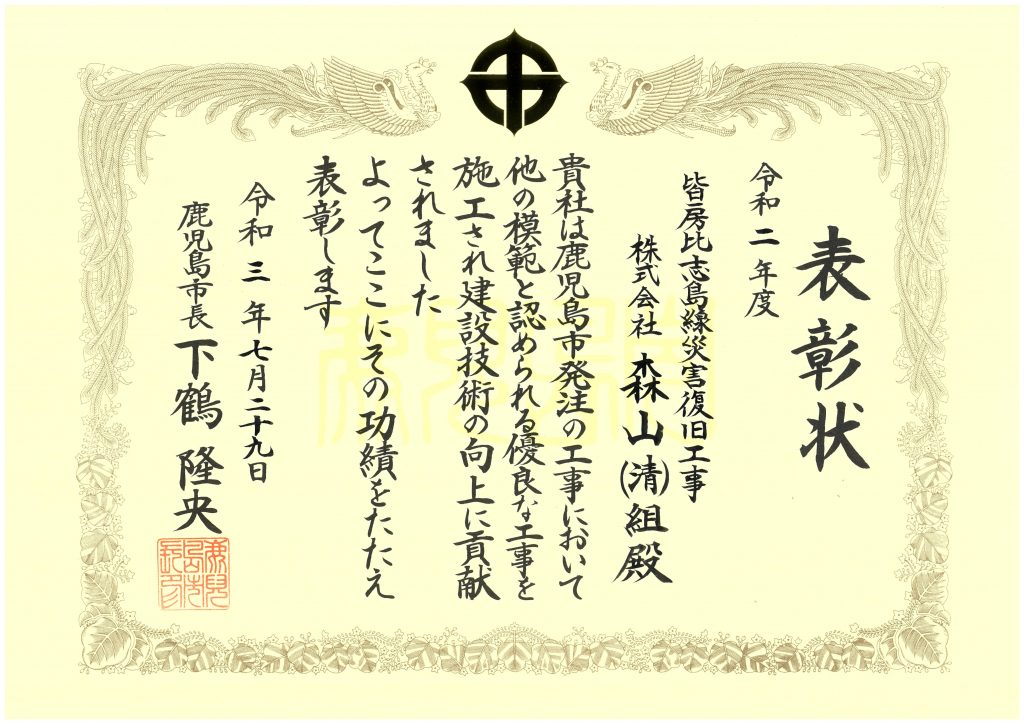 表彰状
令和二年度
皆房比志島線災害復旧工事
株式会社 森山(清)組殿
貴社は鹿児島市発注の工事において
他の模範と認められる優良な工事を
施工され建設技術の向上に貢献
されました
よってここにその功績をたたえ
表彰します
令和三年七月二十九日
鹿児島市長 下鶴隆央
鹿児島市長印